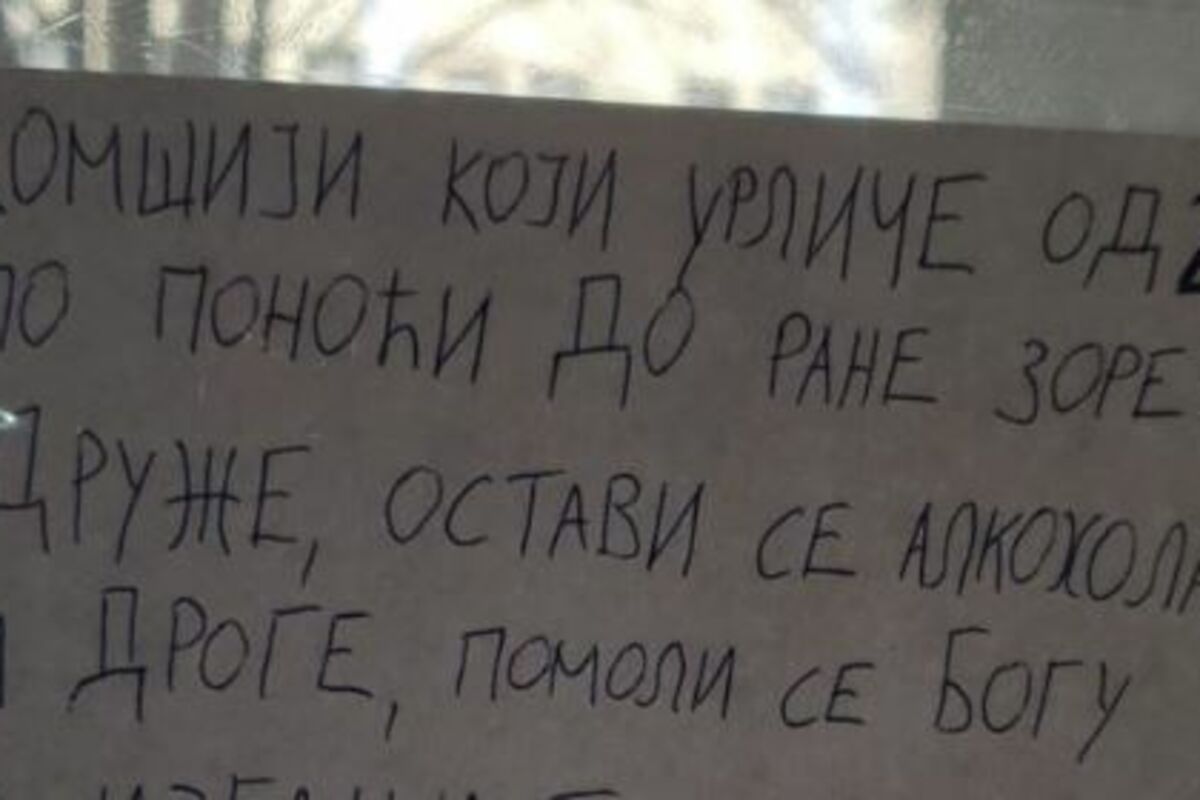 КОМШИЈИ КОЈИ УРЛИЧЕ ОД 2
ПО ПОНОЋИ ДО РАНЕ ЗОРЕ
ДРУЖЕ, ОСТАВИ СЕ АЛКОХОЛА
И ДРОГЕ, ПОМОЛИ СЕ БОГУ